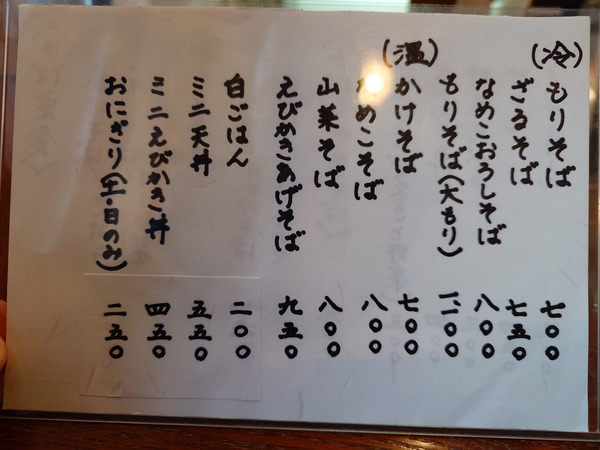 (冷) もりそば 七〇〇
ざるそば 七五〇
なめこおろしそば 八〇〇
もりそば(大もり) 一、一〇〇
(温) かけそば 七〇〇
なめこそば 八〇〇
山菜そば 八〇〇
えびかきあげそば 九五〇
白ごはん 二〇〇
ミニ天丼 五五〇
ミニえびかき丼 四五〇
おにぎり(土・日のみ) 二五〇